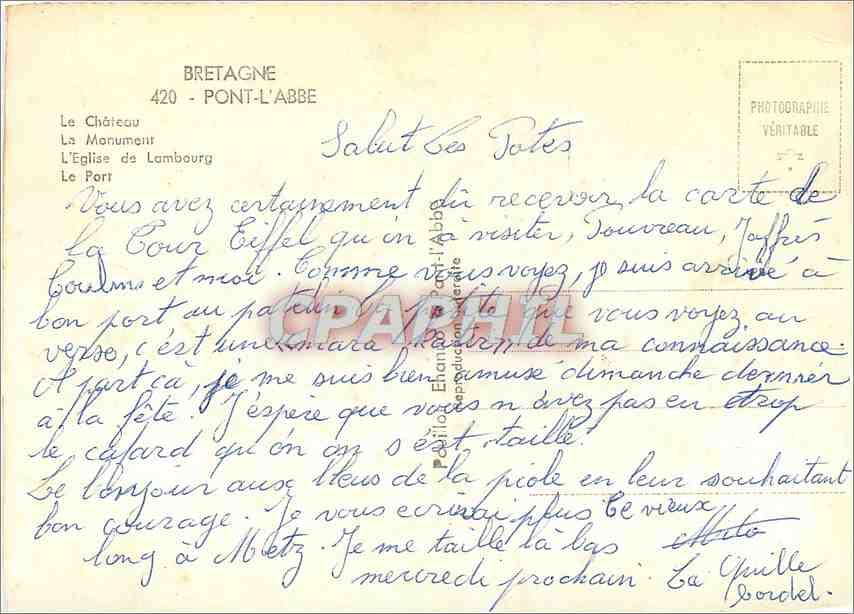 BRETAGNE
420 - PONT-L'ABBE
Le Château
Le Monument
L'Eglise de Lambourg
Le Port
PHOTOGRAPHIE
VÉRITABLE
Salut Les Potes
Vous avez certainement dû recevoir la carte de
la Tour Eiffel qu'on à visiter, Touvreau, Jaffrès
et moi. Comme vous voyez, je suis arrivé à
bon port au patelin la petite que vous voyez au
verso, c'est une de ma connaissance.
A part cà, je me suis bien amusé dimanche dernier
à la fête. J'éspère que vous n'avez pas eu trop
le cafard qu'on on s'est taillé.
Le bonjour aux bleus de la piole en leur souhaitant
bon courage. Je vous ecrirai plus
long à Metz. Je me taille là bas Ce vieux
mercredi prochain. La Quille
bordel.
Pavillon Pont-l'Abbé
Reproduction interdite
CPAPHIL